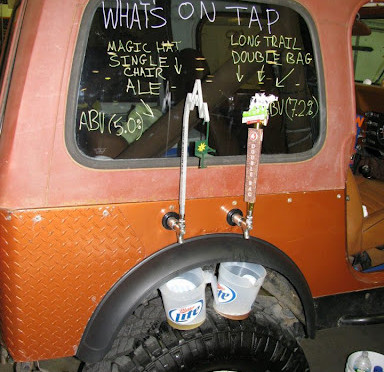 WHAT'S ON TAP
MAGIC HAT
SINGLE
CHAIR
ALE
ABV (5.0%)
LONG TRAIL
DOUBLE BAG
ABV (7.2%)
DOUBLE BAG
Lite
Lite